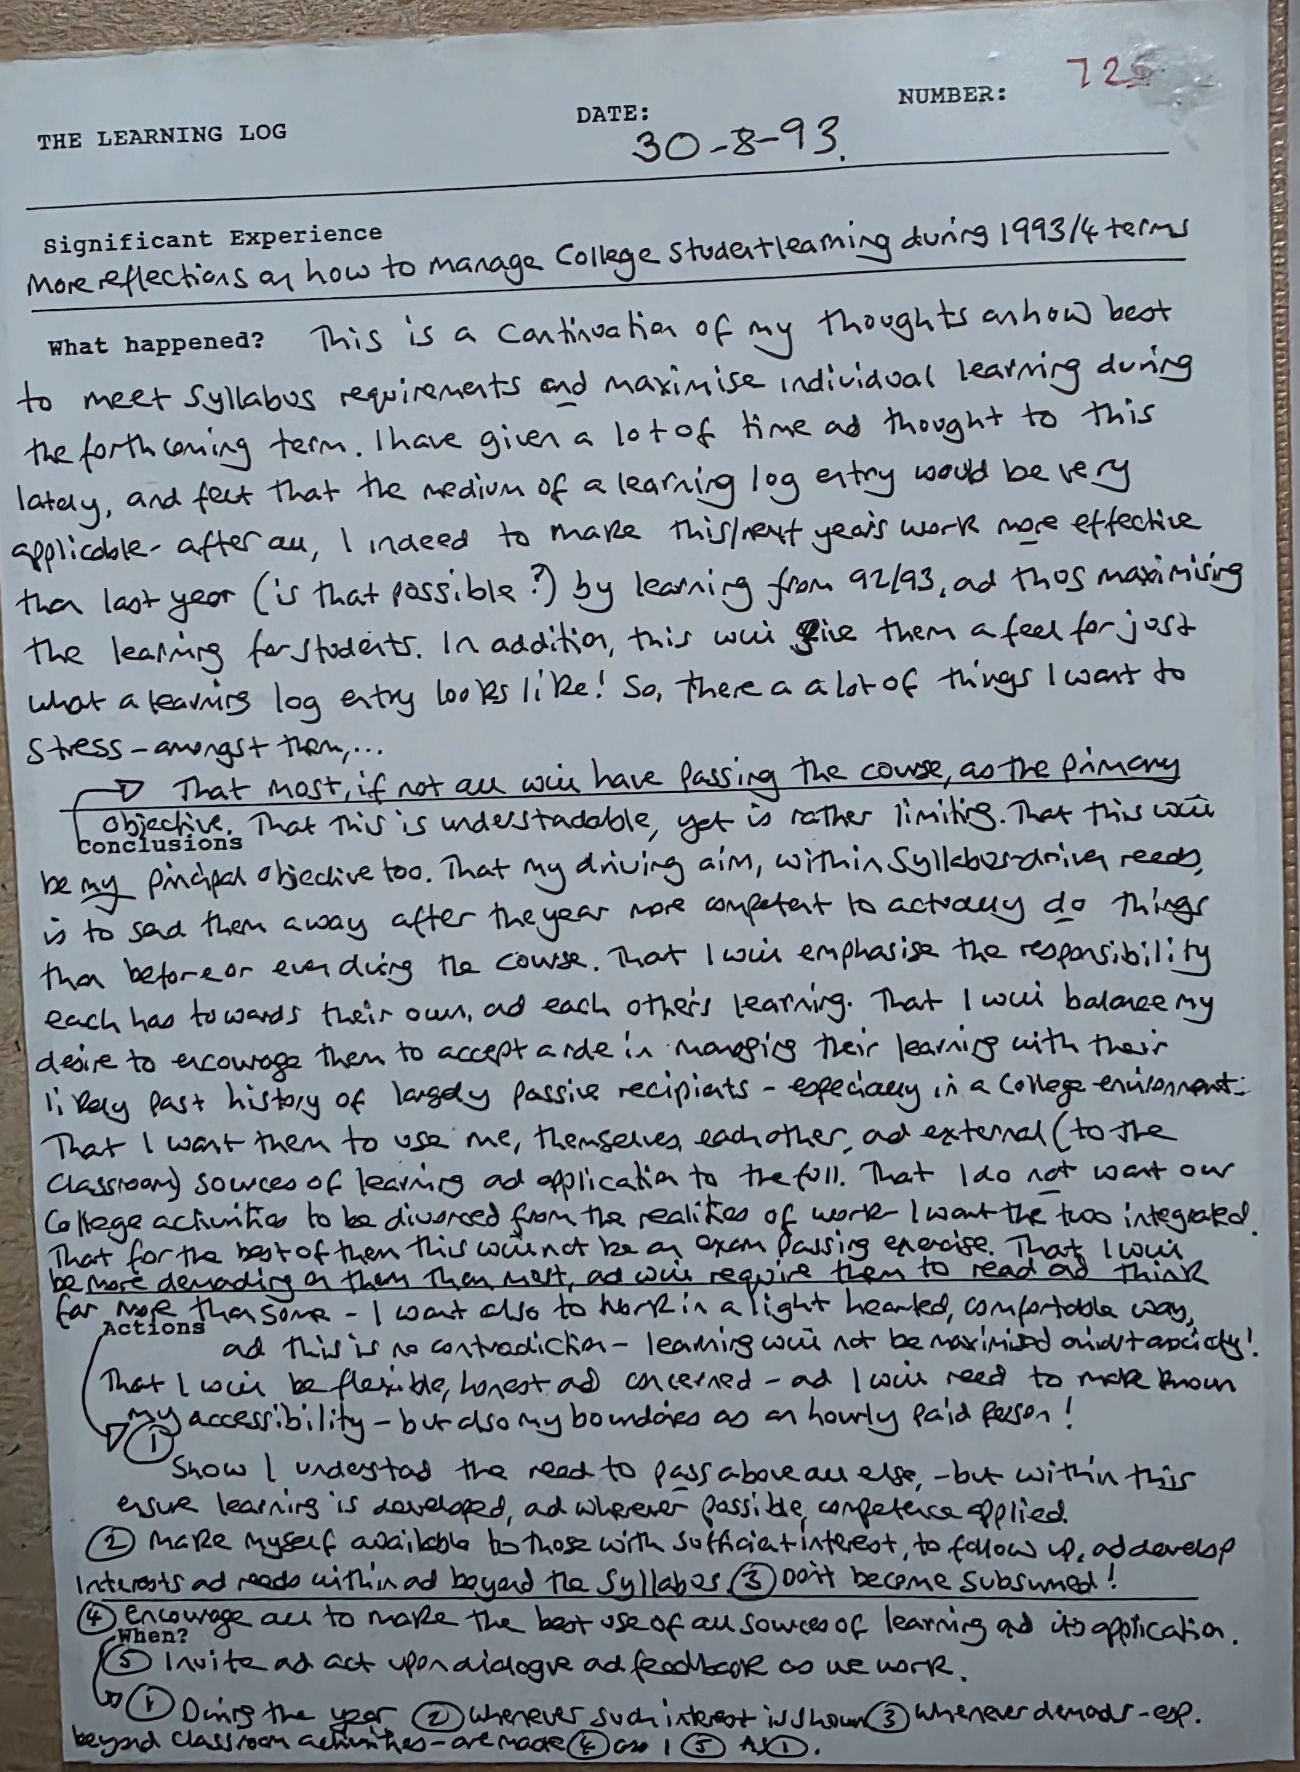 THE LEARNING LOG DATE: 30-8-93. NUMBER: 725
Significant Experience
More reflections on how to manage College Student learning during 1993/4 terms
What happened? This is a continuation of my thoughts on how best
to meet Syllabus requirements and maximise individual learning during
the forthcoming term. I have given a lot of time ad thought to this
lately, and feel that the medium of a learning log entry would be very
applicable - after all, I indeed to make this/next year's work more effective
than last year (is that possible?) by learning from 92/93, ad thus maximising
the learning for students. In addition, this will give them a feel for just
what a learning log entry looks like! So, there a a lot of things I want to
stress - amongst them,...
That most, if not all will have passing the course, as the primary
objective. That this is understadable, yet is rather limiting. That this will
Conclusions
be my principal objective too. That my driving aim, within Syllabus-driven needs,
is to send them away after the year more competent to actually do things
than before or even during the course. That I will emphasise the responsibility
each has towards their own, ad each other's learning. That I will balance my
desire to encourage them to accept a role in managing their learning with their
likely past history of largely passive recipients - especially in a College environment.
That I want them to use me, themselves, each other, ad external (to the
classroom) sources of learning ad application to the full. That I do not want our
College activities to be divorced from the realities of work - I want the two integrated.
That for the best of them this will not be an exam passing exercise. That I will
be more demading on them than most, ad will require them to read ad think
far more than some - I want also to work in a light hearted, comfortable way,
Actions
ad this is no contradiction - learning will not be maximised amidst anxiety!
That I will be flexible, honest ad concerned - ad I will need to make known
my accessibility - but also my boundaries as an hourly paid person!
① Show I understad the need to pass above all else, - but within this
ensure learning is developed, ad wherever possible, competence applied.
② Make myself available to those with sufficient interest, to follow up, ad develop
interests ad needs within ad beyond the Syllabus ③ Don't become subsumed!
④ Encourage all to make the best use of all sources of learning ad its application.
When?
⑤ Invite ad act upon dialogue ad feedback as we work.
① During the year ② Whenever such interest is shown ③ Whenever demads - esp.
beyond classroom activities - are made ④ as 1 ⑤ As ①.